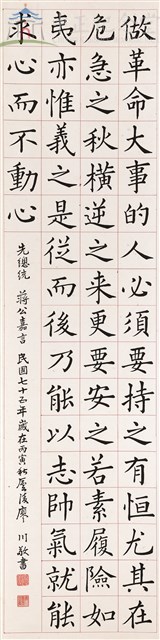 做革命大事的人必須要持之有恒尤其在
危急之秋橫逆之來更要安之若素履險如
夷亦惟義之是從而後乃能以志帥氣就能
求心而不動心
先總統 蔣公嘉言 民國七十五年歲在丙寅秋 廖 川敬書